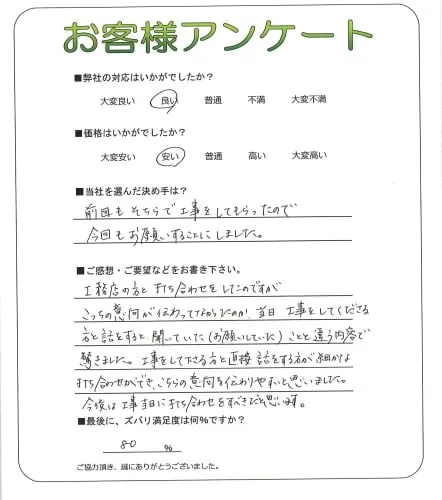 お客様アンケート
■弊社の対応はいかがでしたか?
大変良い 良い 普通 不満 大変不満
■価格はいかがでしたか?
大変安い 安い 普通 高い 大変高い
■当社を選んだ決め手は?
前回もそちらで工事をしてもらったので
今回もお願いすることにしました。
■ご感想・ご要望などをお書き下さい。
工務店の方と打ち合わせをしたのですが
こっちの意向が伝わってなかったのか、当日 工事をしてくださる
方と話をすると、聞いていた(お願いしていた)ことと違う内容で
驚きました。工事をして下さる方と直接 話をする方が細かな
打ち合わせができ、こちらの意向を伝わりやすいと思いました。
今後は工事当日に打ち合わせをすべきだと思います。
■最後に、ズバリ満足度は何%ですか?
80 %
ご協力頂き、誠にありがとうございました。